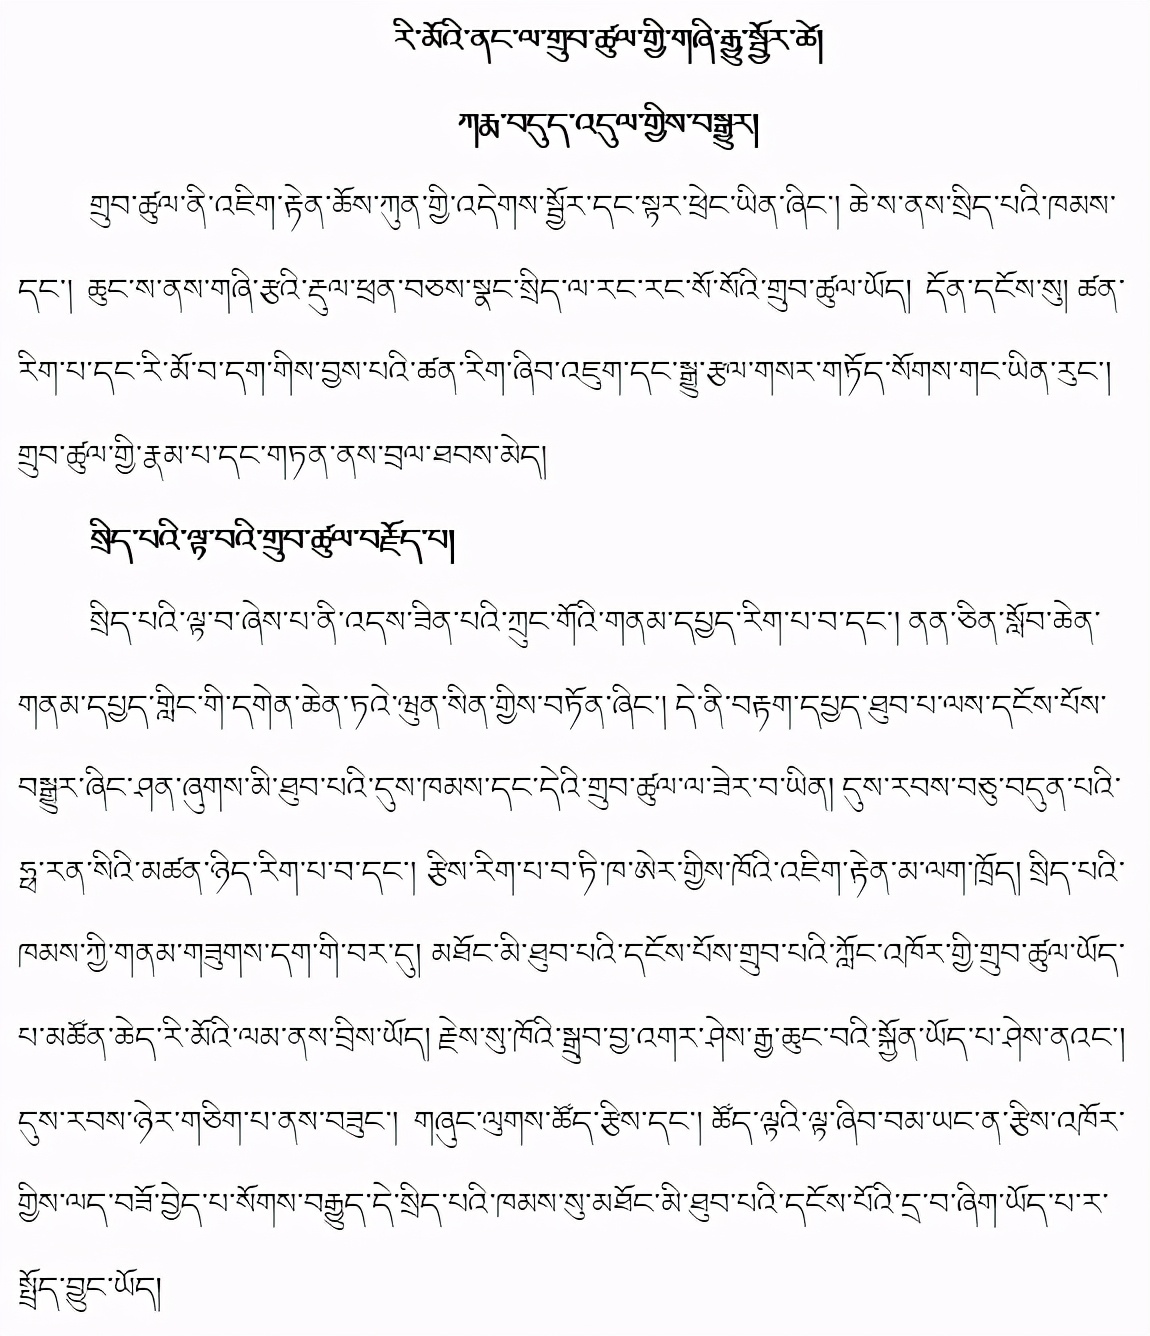 རི་མོའི་ནང་ལ་གྲུབ་ཚུལ་གྱི་གཞི་རྒྱུ་སྦྱོར་ཚེ།
ཀརྨ་བདུད་འདུལ་གྱིས་བསྒྱུར།
གྲུབ་ཚུལ་ནི་འཇིག་རྟེན་ཆོས་ཀུན་གྱི་འདེགས་སྦྱོར་དང་སྟར་ཕྲེང་ཡིན་ཞིང་། ཆེ་ས་ནས་སྲིད་པའི་ཁམས་
དང་། ཆུང་ས་ནས་གཞི་རྩའི་རྡུལ་ཕྲན་བཅས་སྣང་སྲིད་ལ་རང་རང་སོ་སོའི་གྲུབ་ཚུལ་ཡོད། དོན་དངོས་སུ། ཚན་
རིག་པ་དང་རི་མོ་བ་དག་གིས་བྱས་པའི་ཚན་རིག་ཞིབ་འཇུག་དང་སྒྱུ་རྩལ་གསར་གཏོད་སོགས་གང་ཡིན་རུང་།
གྲུབ་ཚུལ་གྱི་རྣམ་པ་དང་གཏན་ནས་བྲལ་ཐབས་མེད།
སྲིད་པའི་ལྟ་བའི་གྲུབ་ཚུལ་བརྗོད་པ།
སྲིད་པའི་ལྟ་བ་ཞེས་པ་ནི་འདས་ཟིན་པའི་ཀྲུང་གོའི་གནམ་དཔྱད་རིག་པ་བ་དང་། ནན་ཅིན་སློབ་ཆེན་
གནམ་དཔྱད་གླིང་གི་དགེན་ཆེན་ཏའེ་ཝུན་སིན་གྱིས་བཏོན་ཞིང་། དེ་ནི་བརྟག་དཔྱད་ཐུབ་པ་ལས་དངོས་པོས་
བསྒྱུར་ཞིང་ཤན་ཞུགས་མི་ཐུབ་པའི་དུས་ཁམས་དང་དེའི་གྲུབ་ཚུལ་ལ་ཟེར་བ་ཡིན། དུས་རབས་བཅུ་བདུན་པའི་
ཧྥ་རན་སིའི་མཚན་ཉིད་རིག་པ་བ་དང་། རྩིས་རིག་པ་བ་ཏི་ཁ་ཨེར་གྱིས་ཁོའི་འཇིག་རྟེན་མ་ལག་ཁྲོད། སྲིད་པའི་
ཁམས་ཀྱི་གནམ་གཟུགས་དག་གི་བར་དུ། མཐོང་མི་ཐུབ་པའི་དངོས་པོས་གྲུབ་པའི་ཀློང་འཁོར་གྱི་གྲུབ་ཚུལ་ཡོད་
པ་མཚོན་ཆེད་རི་མོའི་ལམ་ནས་བྲིས་ཡོད། རྗེས་སུ་ཁོའི་སྒྲུབ་བྱ་འགར་ཤེས་རྒྱ་ཆུང་བའི་སྐྱོན་ཡོད་པ་ཤེས་ནའང་།
དུས་རབས་ཉེར་གཅིག་པ་ནས་བཟུང་། གཞུང་ལུགས་ཚོད་རྩིས་དང་། ཚོད་ལྟའི་ལྟ་ཞིབ་བམ་ཡང་ན་རྩིས་འཁོར་
གྱིས་ལད་བཟོ་བྱེད་པ་སོགས་བརྒྱུད་དེ་སྲིད་པའི་ཁམས་སུ་མཐོང་མི་ཐུབ་པའི་དངོས་པོའི་དྲ་བ་ཞིག་ཡོད་པ་ར་
སྤྲོད་བྱུང་ཡོད།